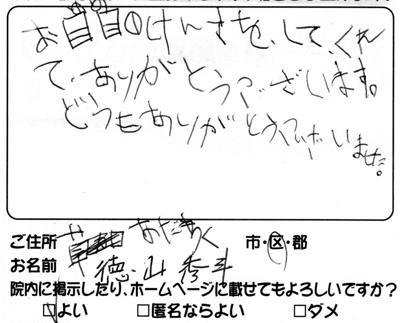 お首のけんさをして、くれ
て、ありがとうございます。
どうもありがとうございました。
ご住所 あだちく 市・区・郡
お名前 徳山 秀斗
院内に掲示したり、ホームページに載せてもよろしいですか?
□よい □匿名ならよい □ダメ